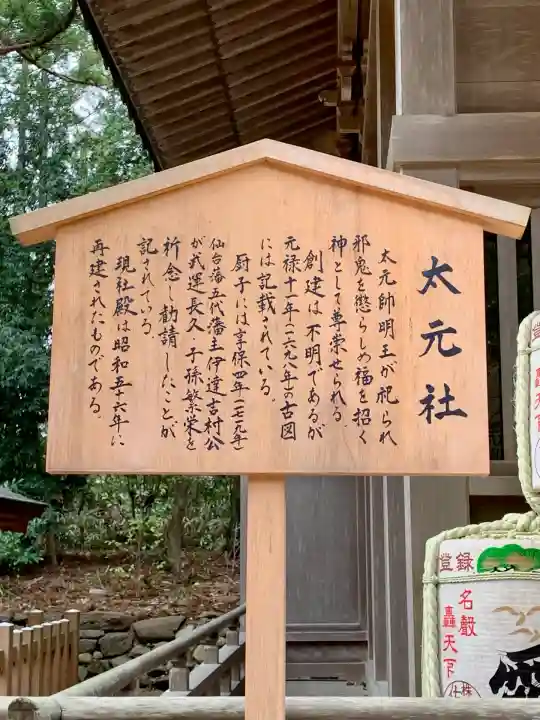 太元社
太元帥明王が祀られ
邪鬼を懲らしめ福を招く
神として尊崇せられる。
創建は不明であるが
元禄十一年(一六九八年)の古図
には記載されている。
厨子には享保四年(一七一九年)
仙台藩五代藩主伊達吉村公
が武運長久・子孫繁栄を
祈念し勧請したことが
記されている。
現社殿は昭和五十六年に
再建されたものである。
登録
名醸
轟天下